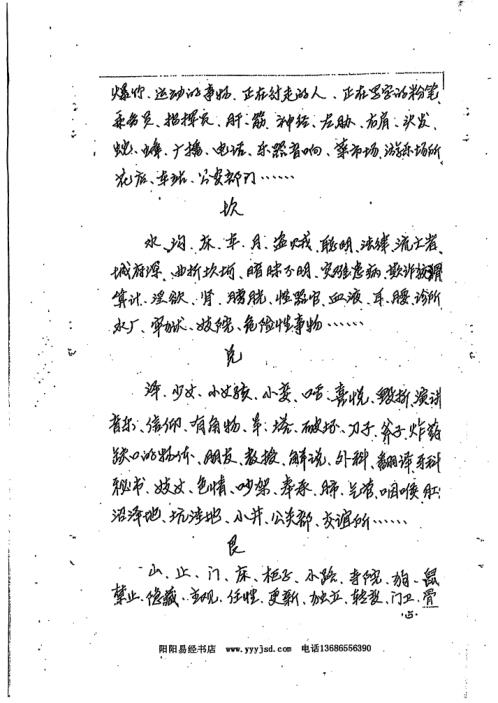 爆炸、运动的事物、正在行走的人、正在写字的粉笔
乘务员、指挥员、肝、筋、神经、左胁、右肩、头发
蛇、蜂、广播、电话、乐器音响、菜市场、游乐场所
花店、车站、公安部门……
坎
水、沟、灰、车、月、盗贼、聪明、法律、流亡者、
城府深、曲折坎坷、暗昧不明、灾难患病、欺诈
算计、淫欲、肾、膀胱、性器官、血液、耳、腰、诊所
水厂、妓院、危险性事物……
兑
泽、少女、小女孩、小妾、口舌、喜悦、毁折、演讲
音乐、信仰、有角物、羊、塔、破坏、刀子、斧子、炸药
缺口的物体、朋友、教授、解说、外科、翻译、牙科
秘书、妓女、色情、吵架、奉承、肺、气管、咽喉、肛
沼泽地、坑洼地、小井、公关部、交谊所……
艮
山、止、门、床、柜子、小路、寺院、狗、鼠
禁止、隐藏、主观、任性、更新、独立、转变、门卫、骨
·5·
阳阳易经书店 www.yyyjsd.com 电话13686556390